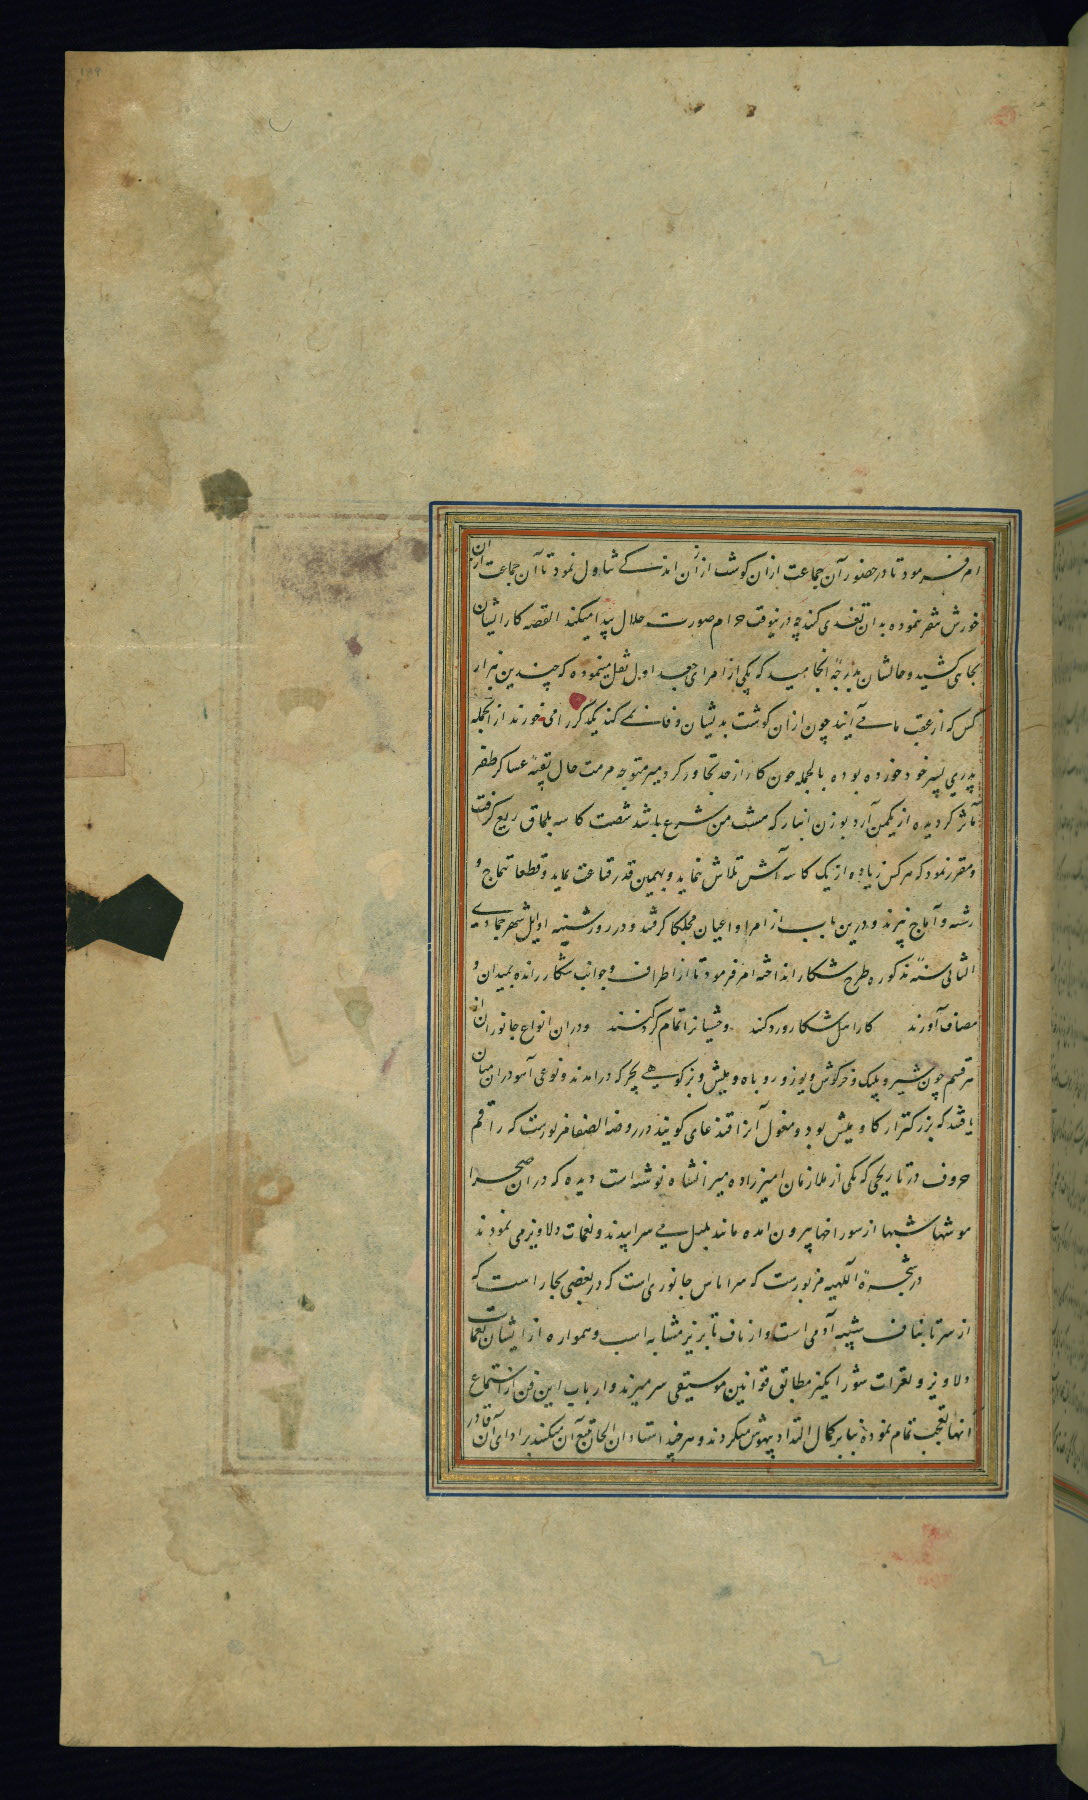 امر فرمود تا در حضور آن جماعت ازان کوشت ازان اندکے تناول نمود تا آن جماعت ازان
خورش تنفر نموده بدان تغدی کنند چه درینوقت حرام صورت حلال پیدا میکند القصه کار ایشان
بجای کشید و حالشان بدرجهٔ انجامید که یکی از امرای جغد اول نقل مینموده که چندین هزار
کس که از عقب ما مے آیند چون ازان کوشت بدیشان وفا نمے کند یکدکر را می خورند از انجمله
پدری پسر خود خورده بوده بالجمله چون کار از حد تجاوز کرد میر متوجه مرمت حال بقیه عساکر ظفر
مآثر کردیده از یکمن آرد بوزن انبار که هشت من شرع باشد شصت کاسه بلماق ریع کرفت
و مقرر نمود که هرکس زیاده از یک کاسه آش تلاش ننماید و بهمین قدر قناعت نماید و قطعا تتماج و
رشته و آماج نپزند و درین باب از امرا و اعیان مجلکا کرفتند و در روز شنبه اوایل شهر جمادی
الثانی سنهٔ مذکوره طرح شکار انداخته امر فرمود تا از اطراف و جوانب شکار رانده بمیدان و
مصاف آورند کاراهل شکار ورد کنند وحشیانرا تمام کرد کنند و دران انواع جانوران از
هر قسم چون شیر و پلنک و خرکوش و یوز و روباه و میش و بز کوهی بچرکه درآمدند و نوعی آهو دران میان
یافتند که بزرکتر از کاومیش بود و مغول آنرا قندغای کویند در روضه الصفا مزبورست که راقم
حروف در تاریخی که یکی از ملازمان امیرزاده میرانشاه نوشته است دیده که دران صحرا
موشها شبها از سوراخها بیرون آمده مانند بلبل می سراییدند و نغمات دلاویز می نمودند
در شجرهٔ الکهیه مزبورست که سراماس جانوری است که در بعضی بحار است که
از سر تا بناف شبیه آدمی است و از ناف تا بزیر مشابه اسب و همواره از ایشان نغمات
دلاویز و نقرات شورانکیز مطابق قوانین موسیقی سر میزند و ارباب این فن از استماع
آنها تعجب تمام نموده بنابر کمال التذاذ بیهوش میکردند و هرچند استادان الحان تتبع آن میکنند بر ادای آن قادر